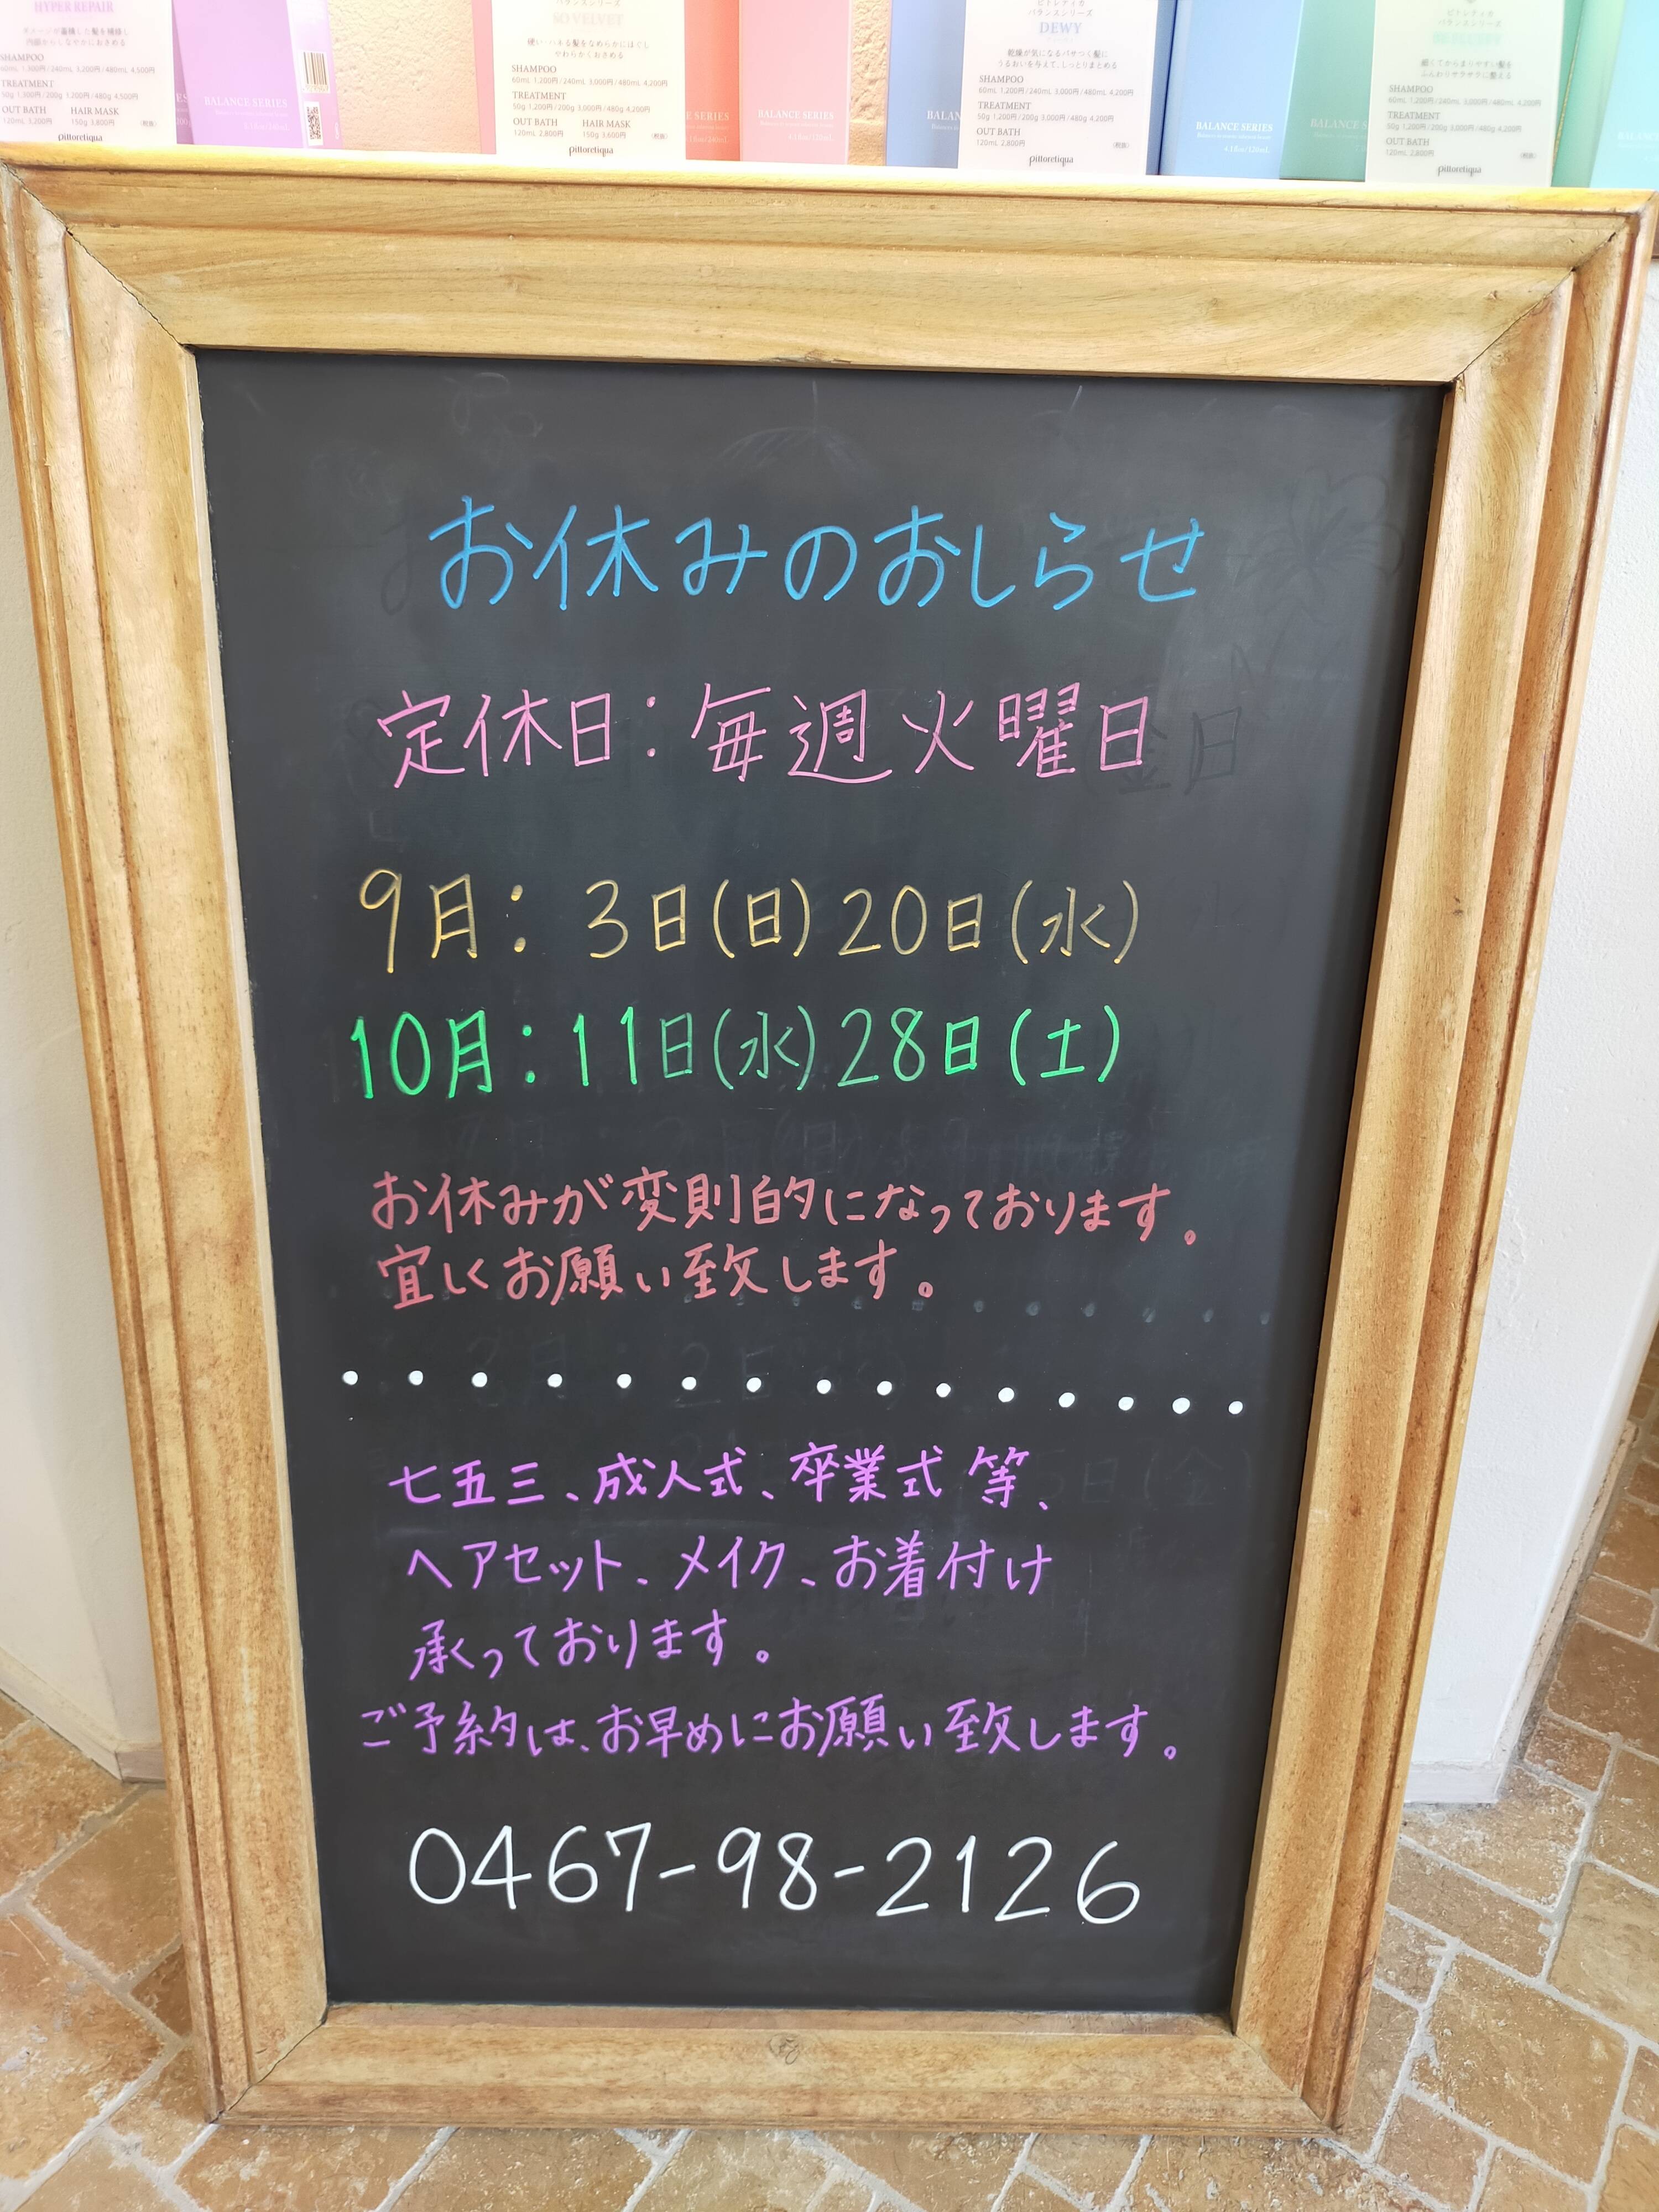 HYPER REPAIR
ダメージが蓄積した髪を補修し
内側からしなやかにおさめる
SHAMPOO
60mL 1,300円/240mL 3,200円/480mL 4,500円
TREATMENT
50g 1,300円/200g 3,200円/480g 4,500円
OUT BATH HAIR MASK
120mL 3,200円 150g 3,800円
pittoretiqua
BALANCE SERIES
バランスシリーズ
SO VELVET
やわらかくおさめる
SHAMPOO
60mL 1,200円/240mL 3,000円/480mL 4,200円
TREATMENT
50g 1,200円/200g 3,000円/480g 4,200円
OUT BATH HAIR MASK
120mL 2,800円 150g 3,600円
(税抜)
pittoretiqua
BALANCE SERIES
ピトレティカ
バランスシリーズ
DEWY
乾燥が気になるパサつく髪に
うるおいを与えて、しっとりまとめる
SHAMPOO
60mL 1,200円/240mL 3,000円/480mL 4,200円
TREATMENT
50g 1,200円/200g 3,000円/480g 4,200円
OUT BATH
120mL 2,800円
(税抜)
pittoretiqua
BALANCE SERIES
ピトレティカ
バランスシリーズ
細くてからまりやすい髪を
ふんわりサラサラに整える
SHAMPOO
60mL 1,200円/240mL 3,000円/480mL 4,200円
TREATMENT
50g 1,200円/200g 3,000円/480g 4,200円
OUT BATH
120mL 2,800円
(税抜)
pittoretiqua
BALANCE SERIES
お休みのおしらせ
定休日:毎週火曜日
9月: 3日(日)20日(水)
10月:11日(水)28日(土)
お休みが変則的になっております。
宜しくお願い致します。
七五三、成人式、卒業式 等、
ヘアセット、メイク、お着付け
承っております。
ご予約は、お早めにお願い致します。
0467-98-2126